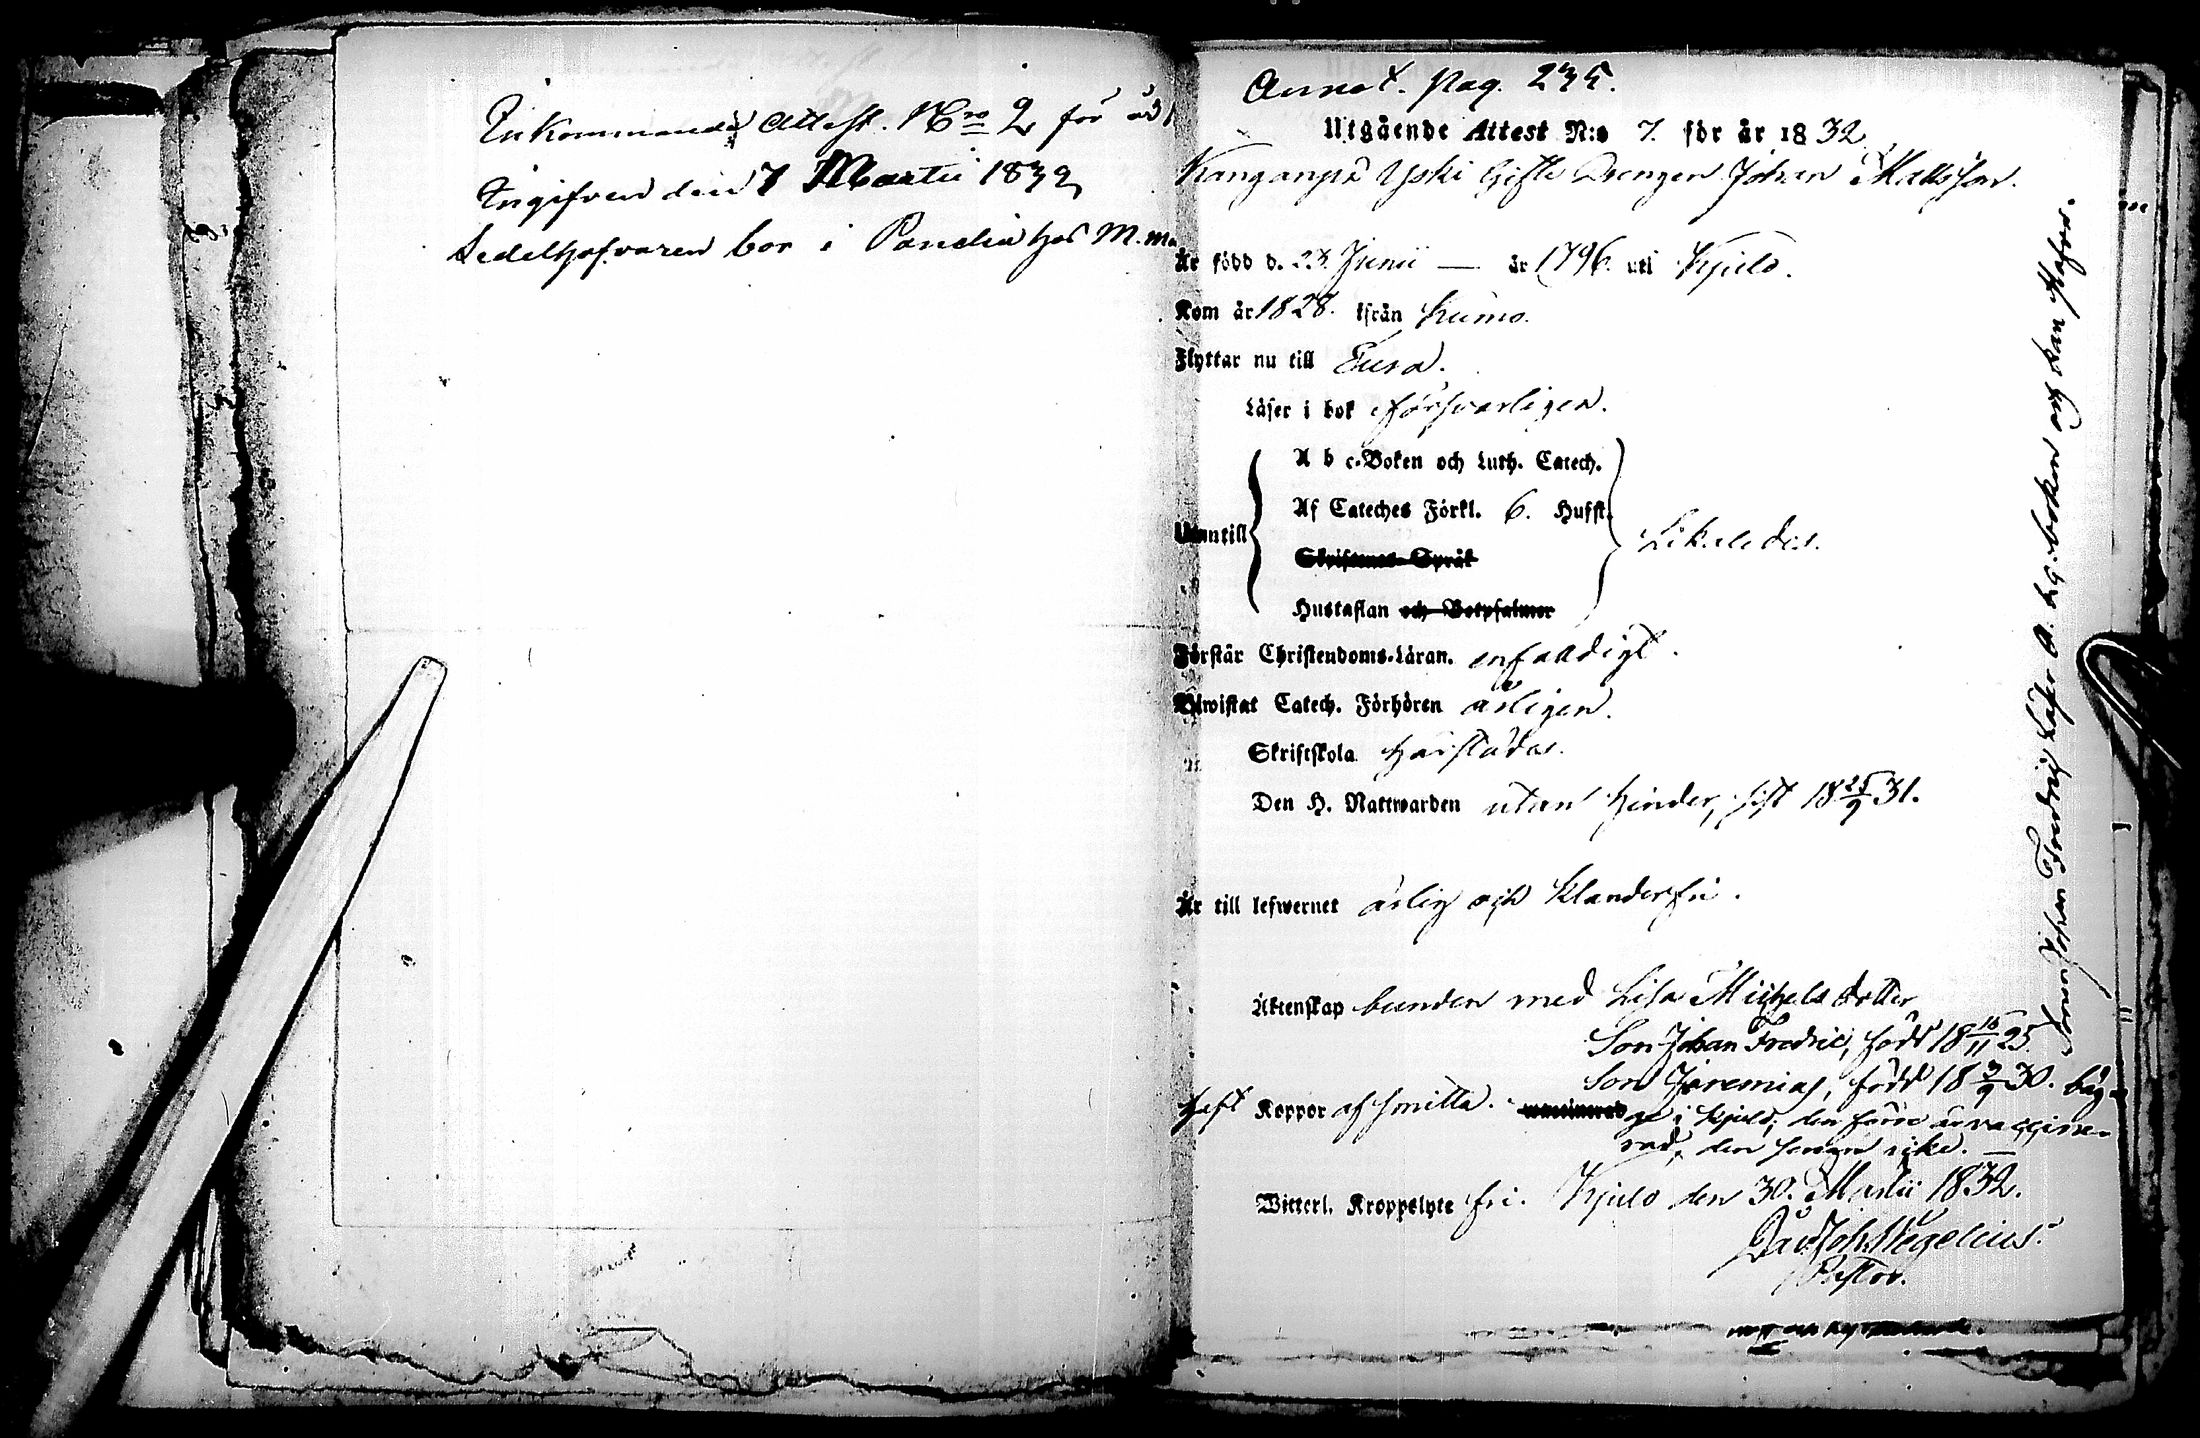 Inkommande Attest. N:ro 2 för år
Ingifven den 7 Martii 1832
Sedelhafvaren bor i Panelia hos M. Ma
Annot. pag. 235.
Utgående Attest N:o 7. för år 1832
Kanganpä Yski Gifte Drengen Johan Mattsson.
Är född d. 24. Junii — år 1796. uti Kjulo.
Kom år 1828. ifrån Kumo.
Flyttar nu till Eura.
Läser i bok försvarligen.
A b c-Boken och Luth. Catech.
Af Cateches Förkl. 6. Hufst.
Utantill
Likaledes.
Skriftenes Språk
Hustaflan och Botpsalmer
Förstår Christendoms-Läran. enfaldigt.
Biwistat Catech. Förhören årligen.
Skriftskola härstädes.
Den H. Nattwarden utan hinder, sist 18 25/9 31.
Är till lefwernet ärlig och klanderfri.
Äktenskap bunden med Lisa Michels dotter
Son Johan Fredric, född 18 16/11 25.
Son Jeremias, född 18 3/9 30. båg-
haft Koppor af smitta. vaccinerad ge i Kjulo; den förre är vaccine-
rad, den senare icke. —
Witterl. Kroppslyte fri. Kjulo den 30. Martii 1832.
Dav. Joh. Wegelius.
Pastor.
Sonen Johan Fredric läser A. b. c.-boken och kan